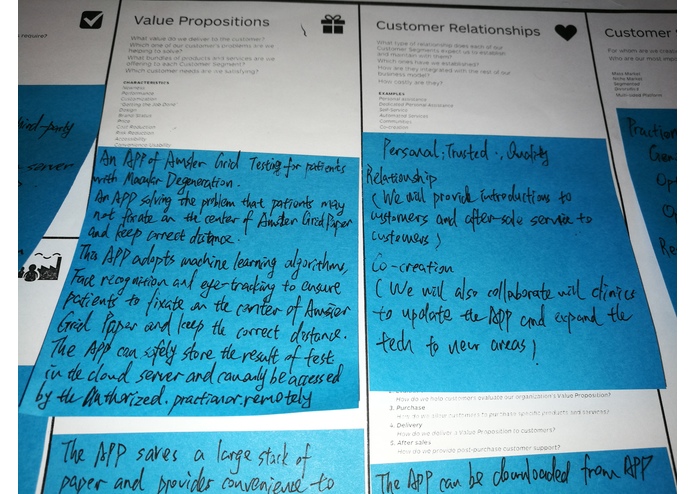 require?
Value Propositions
What value do we deliver to the customer?
Which one of our customer's problems are we
helping to solve?
What bundles of products and services are we
offering to each Customer Segment?
Which customer needs are we satisfying?
CHARACTERISTICS
Newness
Performance
Customization
"Getting the Job Done"
Design
Brand/Status
Price
Cost Reduction
Risk Reduction
Accessibility
Convenience/Usability
An APP of Amsler Grid Testing for patients
with Macular Degeneration.
An APP solving the problem that patients may
not fixate on the center of Amsler Grid Paper
and keep correct distance.
This APP adopts machine learning algorithms,
Face recognition and eye-tracking to ensure
patients to fixate on the center of Amsler
Grid Paper and keep the correct distance.
The APP can safely store the result of test
in the cloud server and can only be accessed
by the authorized. practianor remotely
The APP saves a large stack of
paper and provides convenience to
Customer Relationships
What type of relationship does each of our
Customer Segments expect us to establish
and maintain with them?
Which ones have we established?
How are they integrated with the rest of our
business model?
How costly are they?
EXAMPLES
Personal assistance
Dedicated Personal Assistance
Self-Service
Automated Services
Communities
Co-creation
Personal; Trusted ; Quality
Relationship
(We will provide introductions to
customers and after-sale service to
customers)
Co-creation
(We will also collaborate will clinics
to update the APP and expand the
tech to new areas)
How do we help customers evaluate our organization's Value Proposition?
3. Purchase
How do we allow customers to purchase specific products and services?
4. Delivery
How do we deliver a Value Proposition to customers?
5. After sales
How do we provide post-purchase customer support?
The APP can be downloaded from APP
Customer
For whom are we
Who are our most
Mass Market
Niche Market
Segmented
Diversified
Multi-sided Platform
party
server